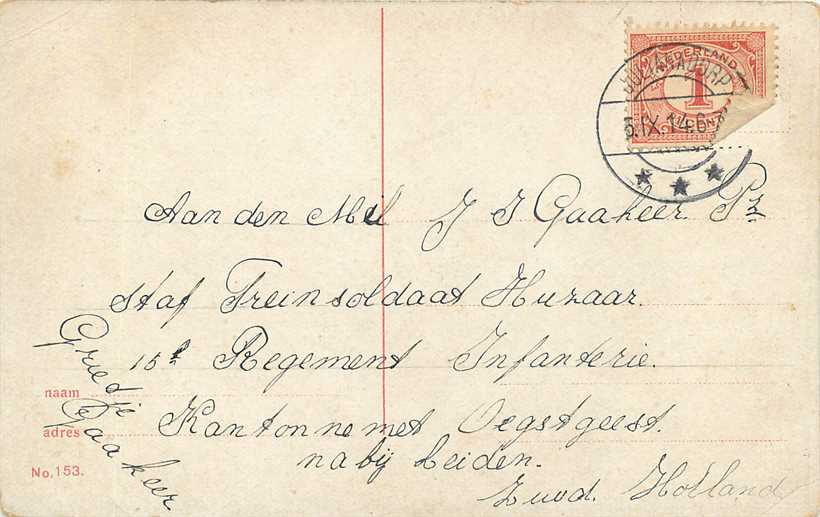 NEDERLAND
1
CENT
JULIANADORP
5.IX.14.6
Aan den Mil J J Gaakeer Pz.
Staf Treinsoldaat Huzaar.
15e Regement Infanterie.
Kantonnemet Oegstgeest.
nabij Leiden.
Zuod. Holland
Gredje
Gaakeer
naam
adres „
No. 153.